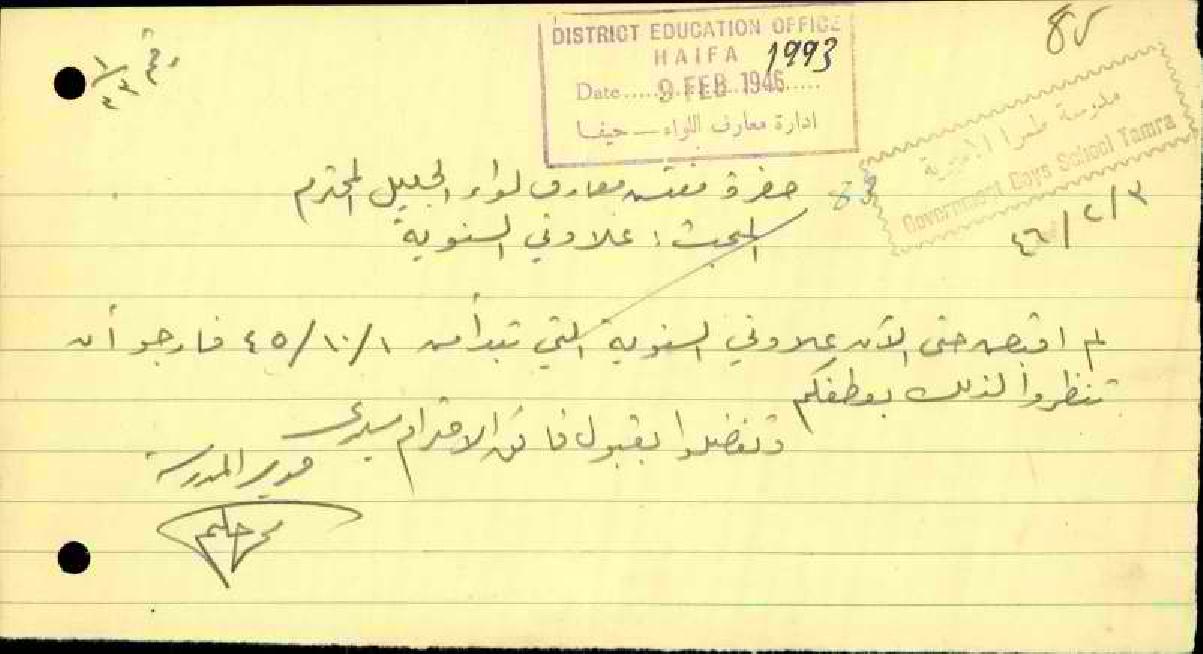 85
رقم ١/٣٣
DISTRICT EDUCATION OFFICE
HAIFA 1993
Date ...... 9 FEB 1946 ......
ادارة معارف اللواء — حيفا
مدرسة طمرا الاميرية
Government Boys School Tamra
٤٦/٢/٣
حضرة مفتش معارف لواء الجليل المحترم
83
المبحث : علاوتي السنوية
لم اقبض حتى الآن علاوتي السنوية التي تبدأ من ٤٥/١٠/١ فارجو أن
تنظروا لذلك بعطفكم
وتفضلوا بقبول فائق الاحترام سيدي
مدير المدرسة